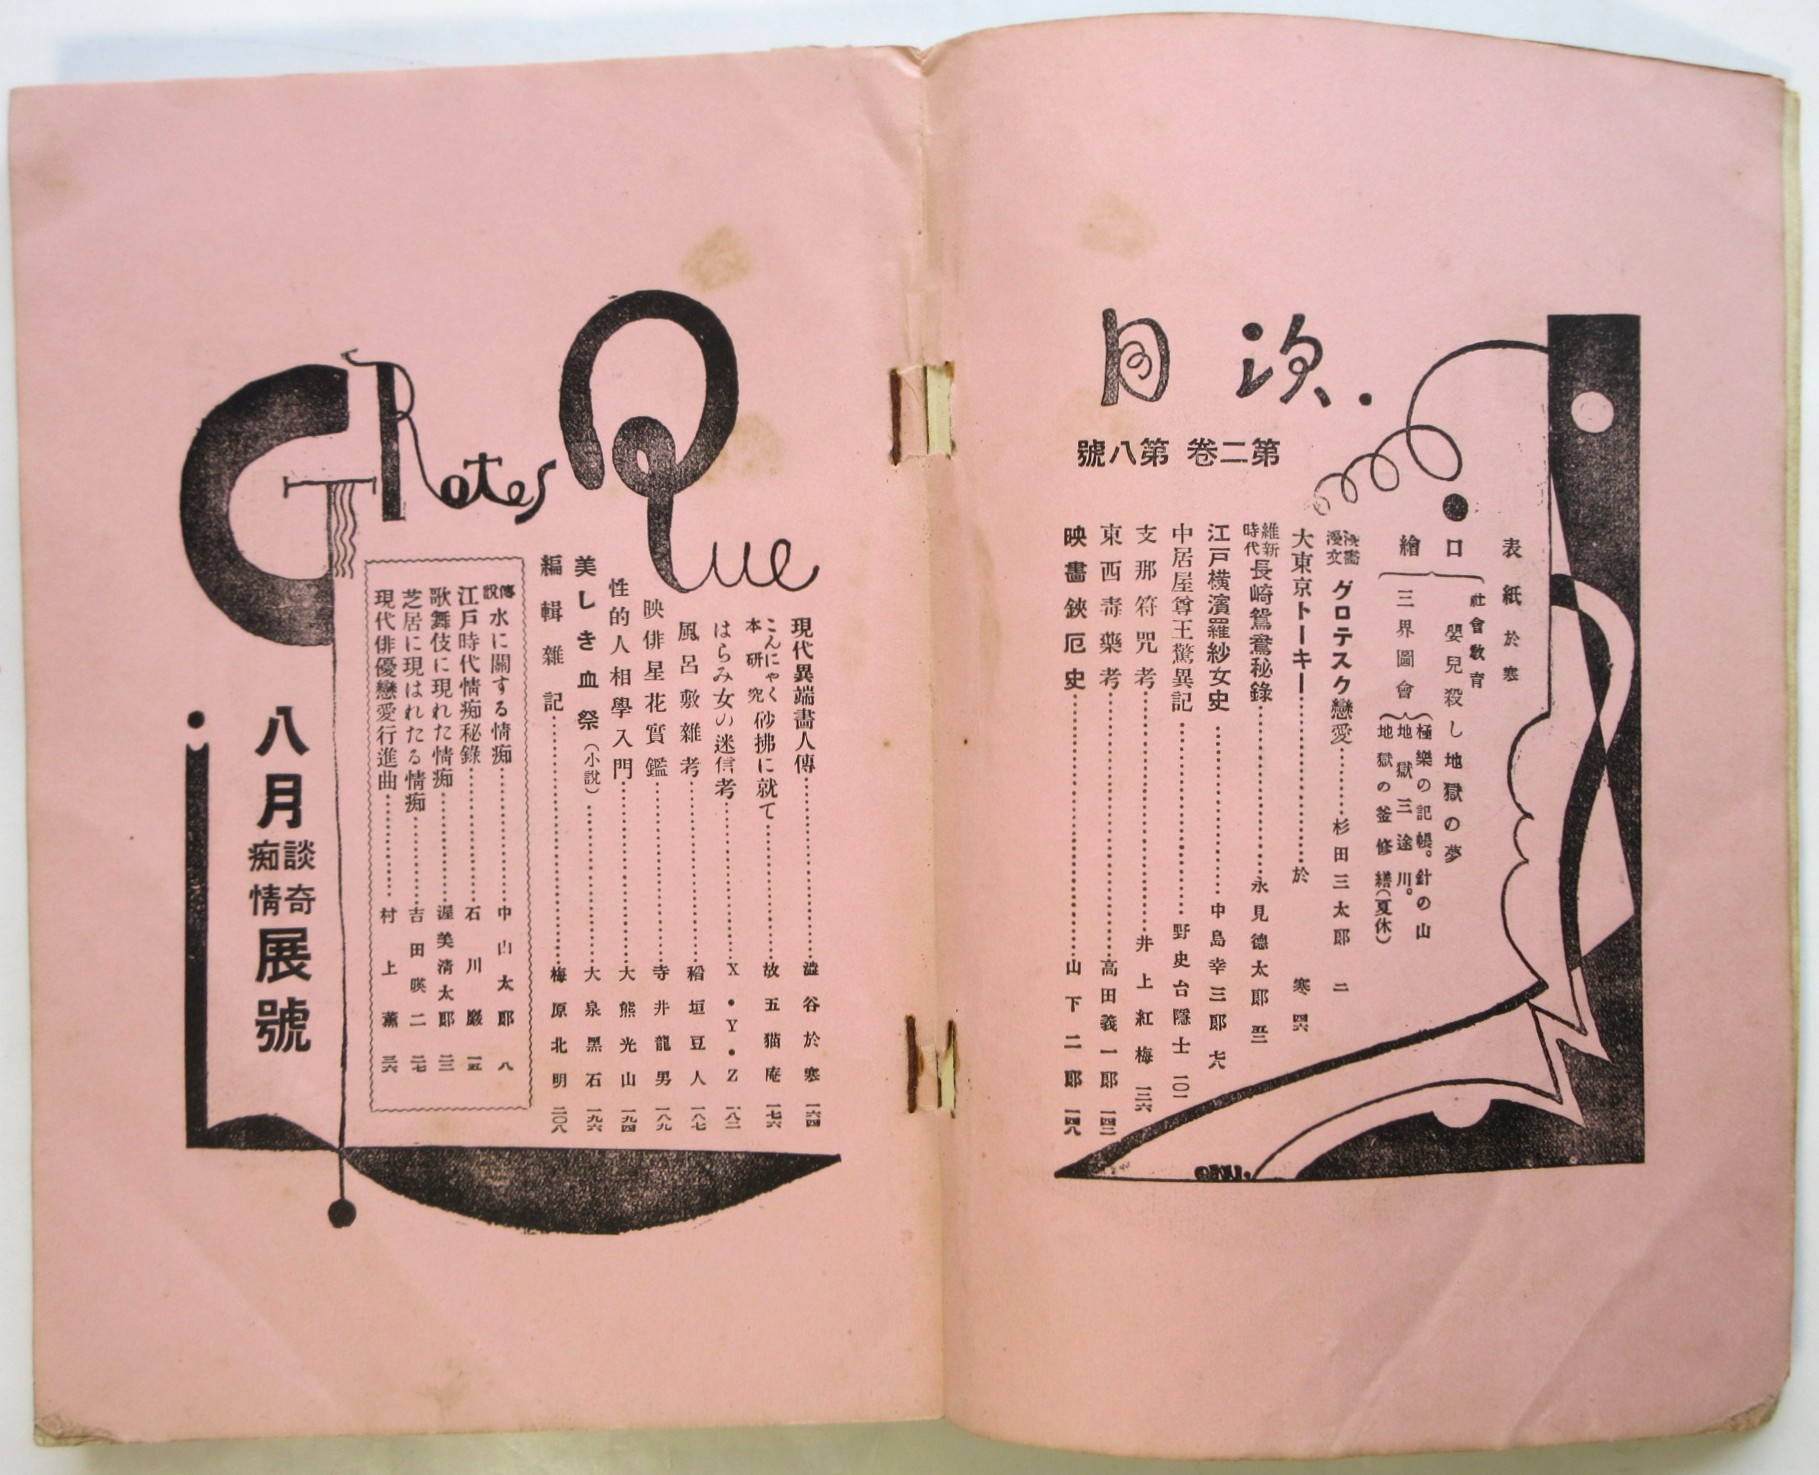 目次.
第二卷 第八號
表紙 於寒
口繪
社會教育 嬰兒殺し地獄の夢
三界圖會
極樂の記帳。針の山
地獄三途川。
地獄の釜修繕(夏休)
漫文 グロテスク戀愛 杉田三太郎 二
大東京トーキー 於寒
維新時代 長崎鴛鴦秘錄 永見德太郎
江戸横濱羅紗女史 中島幸三郎 七六
中居屋尊王驚異記 野史台隱士 一〇一
支那符咒考 井上紅梅 一三六
東西毒藥考 高田義一郎 一四二
映畫鋏厄史 山下二郎 一四八
GROtesQue
現代異端畫人傳 澁谷於寒 一六四
こんにゃく本研究 砂拂に就て 故五猫庵 一七六
はらみ女の迷信考 X・Y・Z 一八二
風呂敷雜考 稻垣豆人 一八七
映俳星花實鑑 寺井龍男 一八九
性的人相學入門 大熊光山 一九四
美しき血祭(小說) 大泉黑石 一九六
編輯雜記 梅原北明 二〇八
傳說 水に關する情痴 中山太郎 八
江戸時代情痴秘錄 石川巖 一五
歌舞伎に現れた情痴 渥美清太郎
芝居に現はれたる情痴 吉田暎二 二七
現代俳優戀愛行進曲 村上薰 三六
八月情痴奇談展號